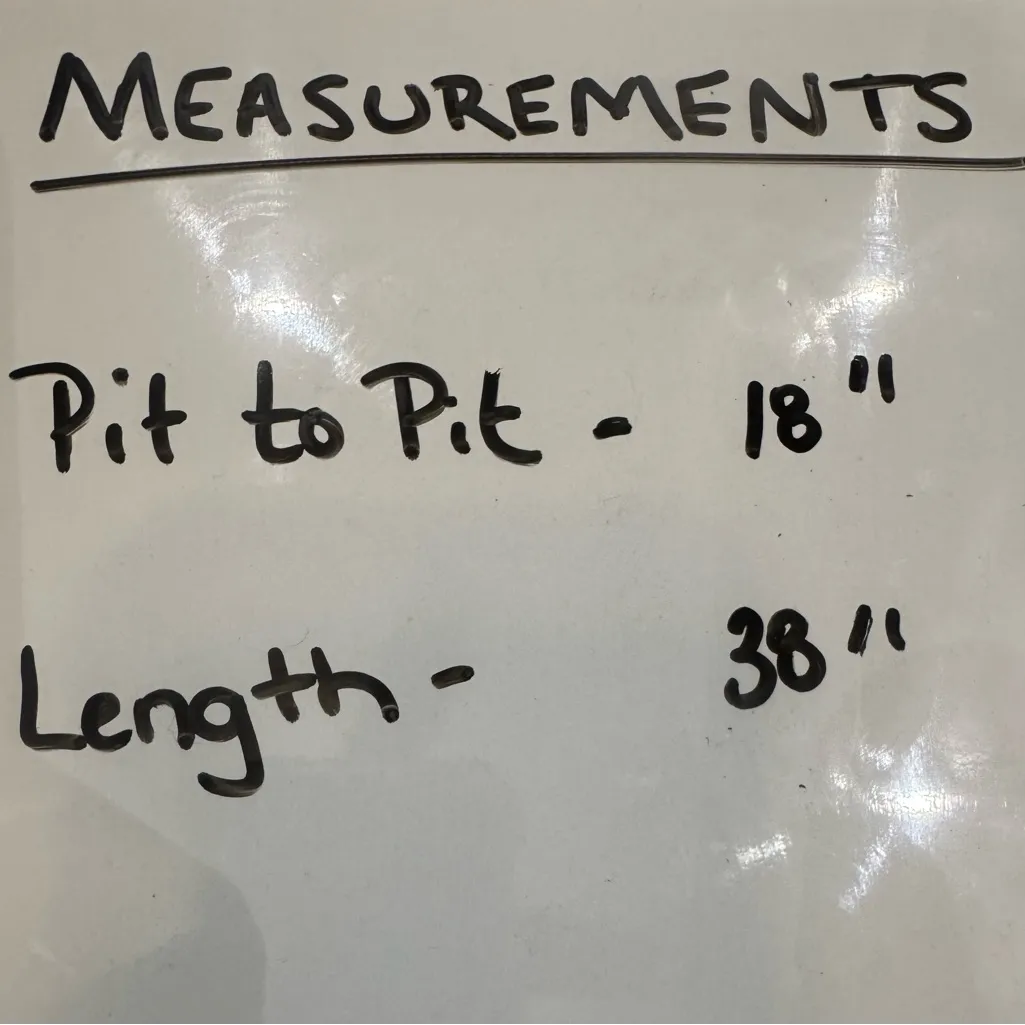 MEASUREMENTS
Pit to Pit - 18"
Length - 38"